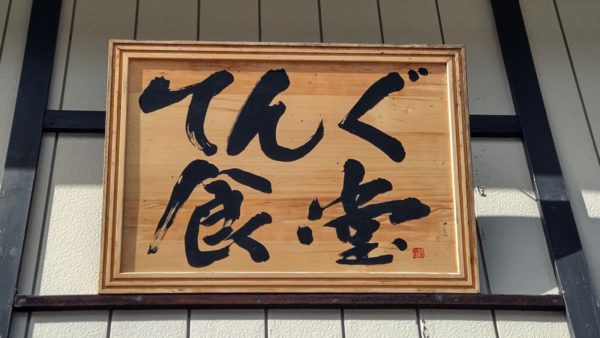 てんぐ
食堂